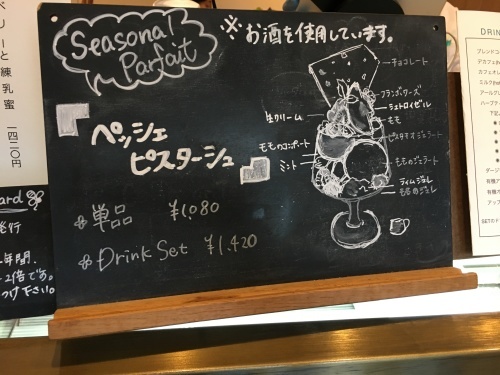 Seasonal
Parfait
※お酒を使用しています。
ペッシェ
ピスターシュ
単品 ¥1,080
Drink Set ¥1,420
チョコレート
フランボワーズ
シュトロイゼル
もも
ピスタチオジェラート
ももジェラート
ライムジュレ
ももジュレ
生クリーム
ももコンポート
ミント
練乳蜜 一四二〇円
ard
発行
年間、
2倍です。
つけ下さい。
DRIN
ブレンドコ
デカフェ(h
カフェオレ
ミルク(ho
アールグレ
ハーブティ
ダージ
有機
有機ア
アップ
SETのド